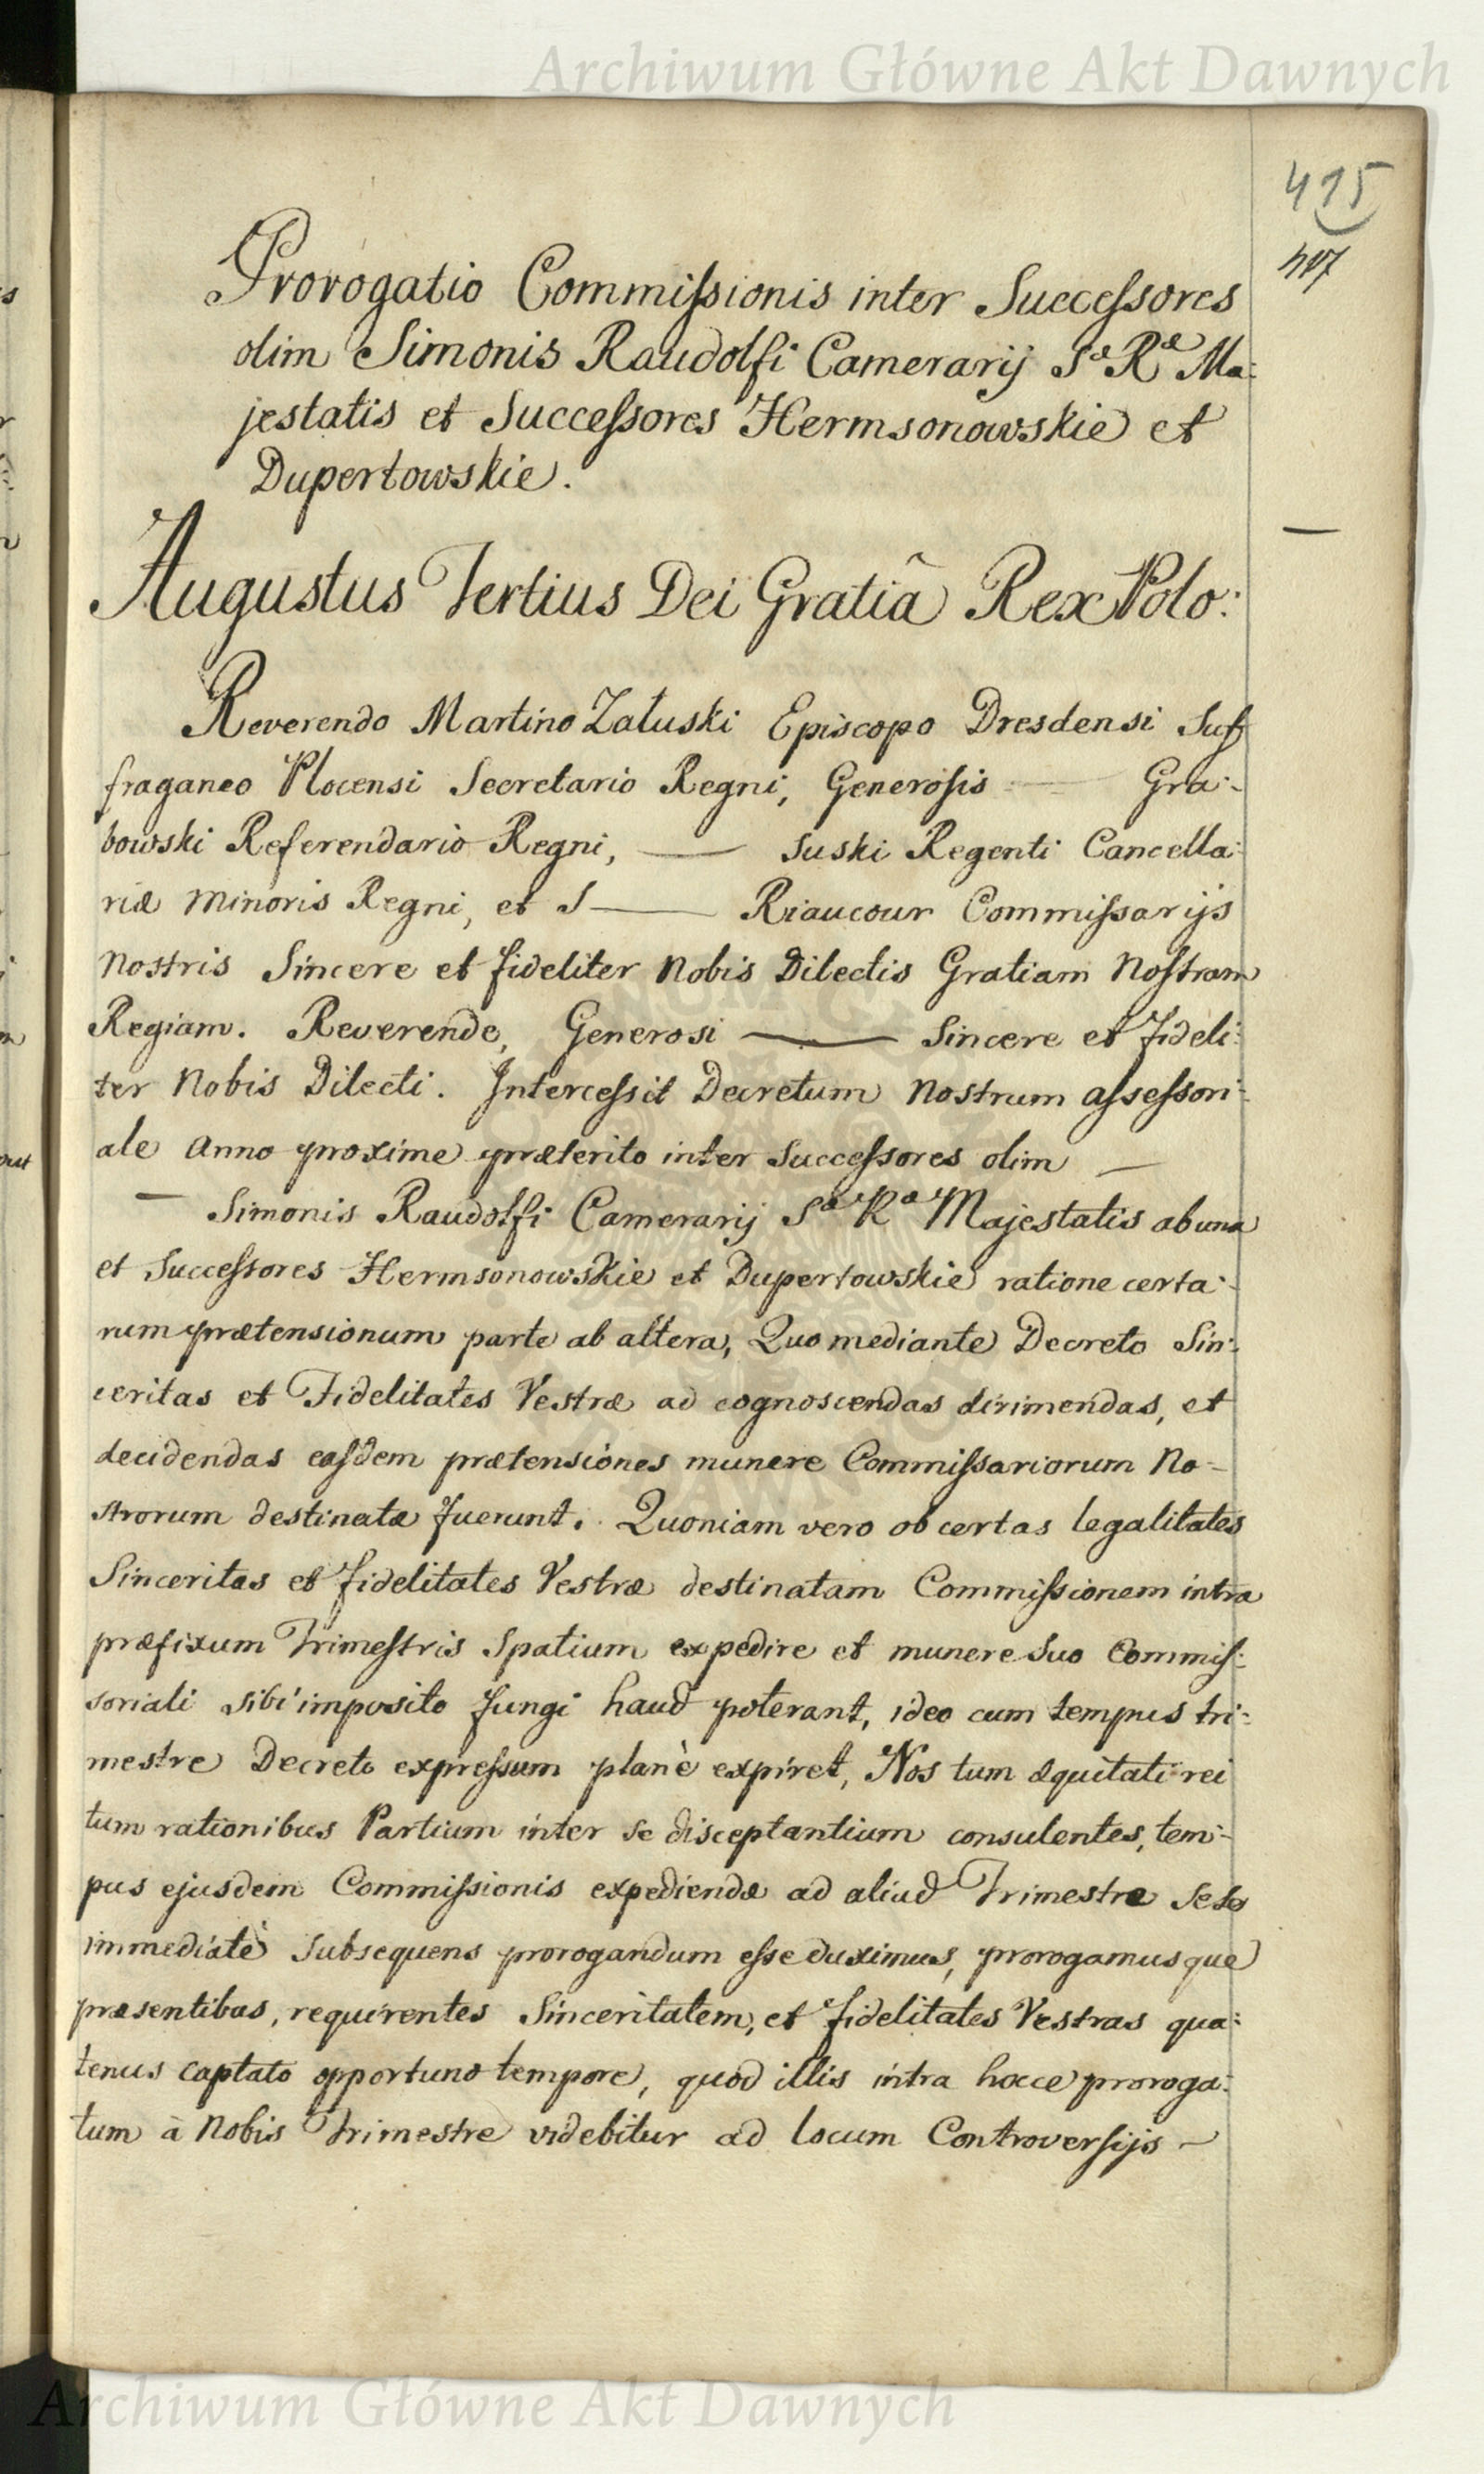 Archiwum Główne Akt Dawnych
415
417
Prorogatio Commiſsionis inter Succeſsores
olim Simonis Raudolfi Camerarij Sæ Ræ Ma:
jestatis et Succeſsores Hermsonowskie et
Dupertowskie.
Augustus Tertius Dei Gratiâ Rex Polo:
Reverendo Martino Zaluski Episcopo Dresdensi Suf
fraganeo Plocensi Secretario Regni, Generoſis — Gra:
bowski Referendario Regni, — Suski Regenti Cancella:
riæ Minoris Regni, et S — Riaucour Commiſsarijs
Nostris Sincere et fideliter Nobis Dilectis Gratiam Noſtram
Regiam. Reverende, Generosi — Sincere et Fideli:
ter Nobis Dilecti. Interceſsit Decretum Nostrum aſseſsori:
ale Anno proxime præterito inter Succeſsores olim —
— Simonis Raudolfi Camerarij Sæ Ræ Majestatis ab una
et Succeſsores Hermsonowskie et Dupertowskie ratione certa:
rum prætensionum parte ab altera, Quo mediante Decreto Sin:
ceritas et Fidelitates Vestræ ad cognoscendas dirimendas, et
decidendas eaſdem prætensiones munere Commiſsariorum No-
strorum destinatæ fuerunt. Quoniam vero ob certas legalitates
Sinceritas et fidelitates Vestræ destinatam Commiſsionem intra
præfixum Trimeſtris Spatium expedire et munere suo Commiſ:
soriali sibi imposito fungi haud poterant, ideo cum tempus tri:
mestre Decreto expreſsum planè expiret, Nos tum æquitati rei
tum rationibus Partium inter se disceptantium consulentes, tem:
pus ejusdem Commiſsionis expediendæ ad aliud Trimestre sese
immediatè subsequens prorogandum eſse duximus, prorogamus que
præsentibus, requirentes Sinceritatem, et fidelitates Vestras qua:
tenus captato opportuno tempore, quod illis intra hocce proroga:
tum à Nobis Trimestre videbitur ad locum Controverſijs –
Archiwum Główne Akt Dawnych